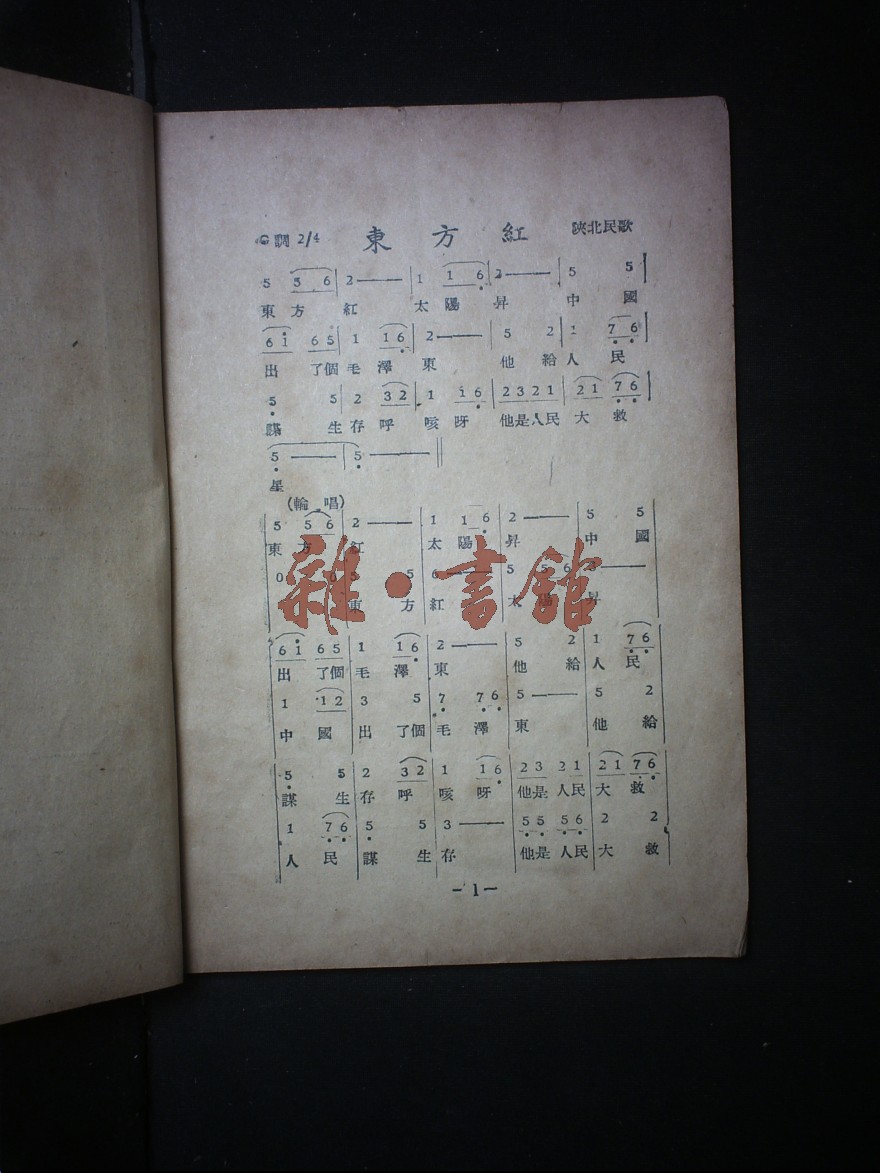 G調 2/4 東方紅 陝北民歌
5 5 6 | 2 —— | 1 1 6 | 2 —— | 5 5 |
東方 紅 太陽 昇 中 國
6 i 6 5 | 1 1 6 | 2 —— | 5 2 | 1 7 6 |
出 了個 毛 澤 東 他 給 人 民
5 5 | 2 3 2 | 1 1 6 | 2 3 2 1 | 2 1 7 6 |
謀 生 存 呼 咳 呀 他是人民 大 救
5 —— | 5 —— ||
星
(輪 唱)
5 5 6 | 2 —— | 1 1 6 | 2 —— | 5 5
東 方 紅 太 陽 昇 中 國
0 0 | 5 5 | 6 —— | 5 5 6 | 2 ——
東 方 紅 太 陽 昇
6 i 6 5 | 1 1 6 | 2 —— | 5 2 | 1 7 6
出 了個 毛 澤 東 他 給 人 民
1 1 2 | 3 5 | 7 7 6 | 5 —— | 5 2
中 國 出 了個 毛 澤 東 他 給
5 5 | 2 3 2 | 1 1 6 | 2 3 2 1 | 2 1 7 6
謀 生 存 呼 咳 呀 他是 人民 大 救
1 7 6 | 5 5 | 3 —— | 5 5 5 6 | 2 2
人 民 謀 生 存 他是 人民 大 救
—1—
雜·書館